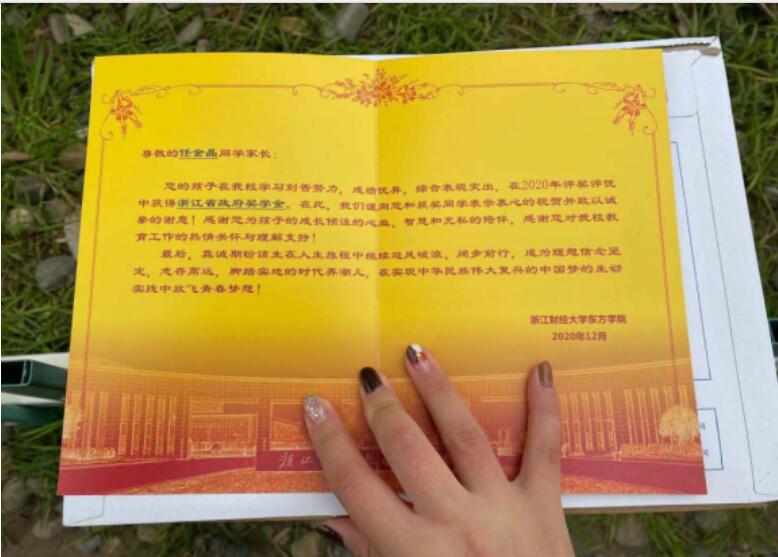 尊敬的任金晶同学家长：
您的孩子在我校学习刻苦努力，成绩优异，综合表现突出，在2020年评奖评优
中获得浙江省政府奖学金。在此，我们谨向您和获奖同学表示衷心的祝贺并致以诚
挚的谢意！感谢您为孩子的成长倾注的心血、智慧和无私的陪伴，感谢您对我校教
育工作的热情关怀与理解支持！
最后，真诚期盼该生在人生旅程中继续迎风破浪、阔步前行，成为理想信念坚
定，志存高远，脚踏实地的时代弄潮儿，在实现中华民族伟大复兴的中国梦的生动
实践中放飞青春梦想！
浙江财经大学东方学院
2020年12月
浙江